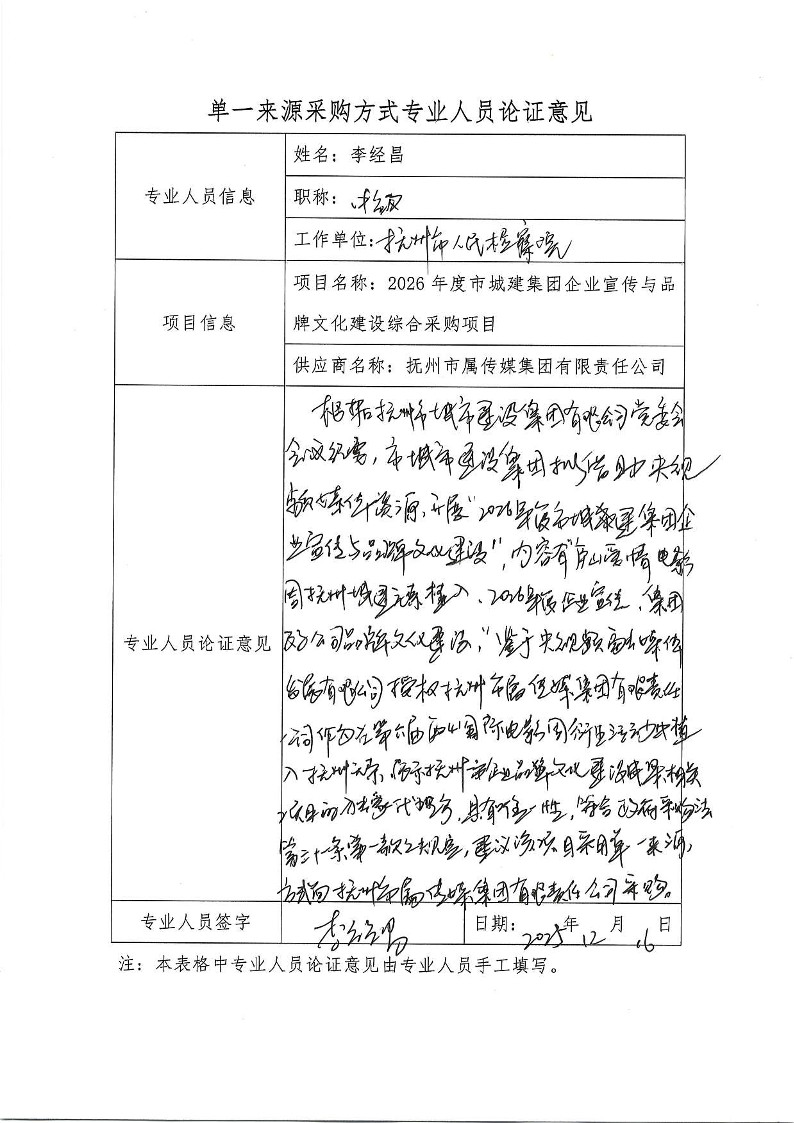 单一来源采购方式专业人员论证意见
专业人员信息
姓名：李经昌
职称：
工作单位：抚州市人民检察院
项目信息
项目名称：2026 年度市城建集团企业宣传与品
牌文化建设综合采购项目
供应商名称：抚州市属传媒集团有限责任公司
专业人员论证意见
根据抚州市城市建设集团有限公司党委会
会议纪要，市城市建设集团拟借助央视
频媒体资源，开展"2026年度市城建集团企
业宣传与品牌文化建设"，内容有庐山爱情电影
周抚州城建元素植入、2026年度企业宣传、集团
及子公司品牌文化建设，鉴于央视频融媒体
发展有限公司授权抚州市属传媒集团有限责任
公司作为在第六届庐山国际电影周衍生活动中植
入抚州元素，展示抚州市企业品牌文化建设成果相关
项目的独家代理方，具有唯一性，符合政府采购法
第三十一条第一款之规定，建议该项目采用单一来源
方式向抚州市属传媒集团有限责任公司采购。
专业人员签字
李经昌
日期：2025年12月16日
注：本表格中专业人员论证意见由专业人员手工填写。